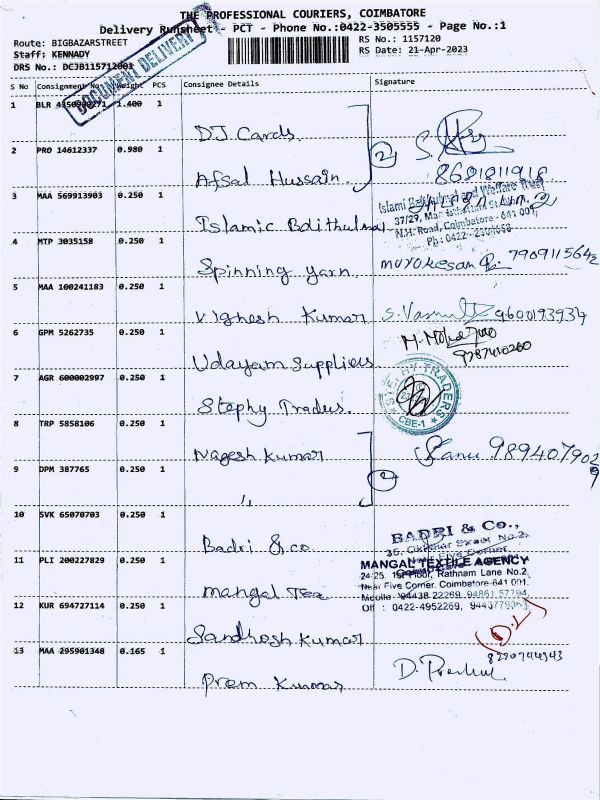 THE PROFESSIONAL COURIERS, COIMBATORE
Delivery Runsheet - PCT - Phone No.:0422-3505555 - Page No.:1
Route: BIGBAZARSTREET
RS No.: 1157120
Staff: KENNADY
RS Date: 21-Apr-2023
DRS No.: DC3B115712003
DOCUMENT DELIVERY
S No Consignment No Weight PCS Consignee Details Signature
1 BLR 1.400 1
DJ Cards
2 PRO 14612337 0.980 1
Afsal Hussain
2
8681811918
3 MAA 569913903 0.250 1
Islamic Bdithulmal
Islami Baithulmal and Welfare Trust
37/29,
N.H. Road, Coimbatore - 641 001.
Ph: 0422 -
4 MTP 3035158 0.250 1
Spinning yarn
murukesan
5 MAA 100241183 0.250 1
Vighesh Kumar
9600193934
6 GPM 5262735 0.250 1
Udayam Suppliers
9787410260
7 AGR 600002997 0.250 1
Stephy Traders.
STEPHY TRADERS
CBE-1
8 TRP 5858106 0.250 1
Nagesh Kumar
9894079029
9 DPM 387765 0.250 1
"
2
10 SVK 65070703 0.250 1
Badri & co
BADRI & Co.,
11 PLI 200227829 0.250 1
mangal Tex
MANGAL TEXTILE AGENCY
24/25, 1st Floor, Rathnam Lane No.2,
Near Five Corner, Coimbatore-641 001.
Mobile : 94438 22269, 94861 57794
Off : 0422-4952269,
12 KUR 694727114 0.250 1
Sandhosh Kumar
(D.L)
13 MAA 295901348 0.165 1
Prem Kumar